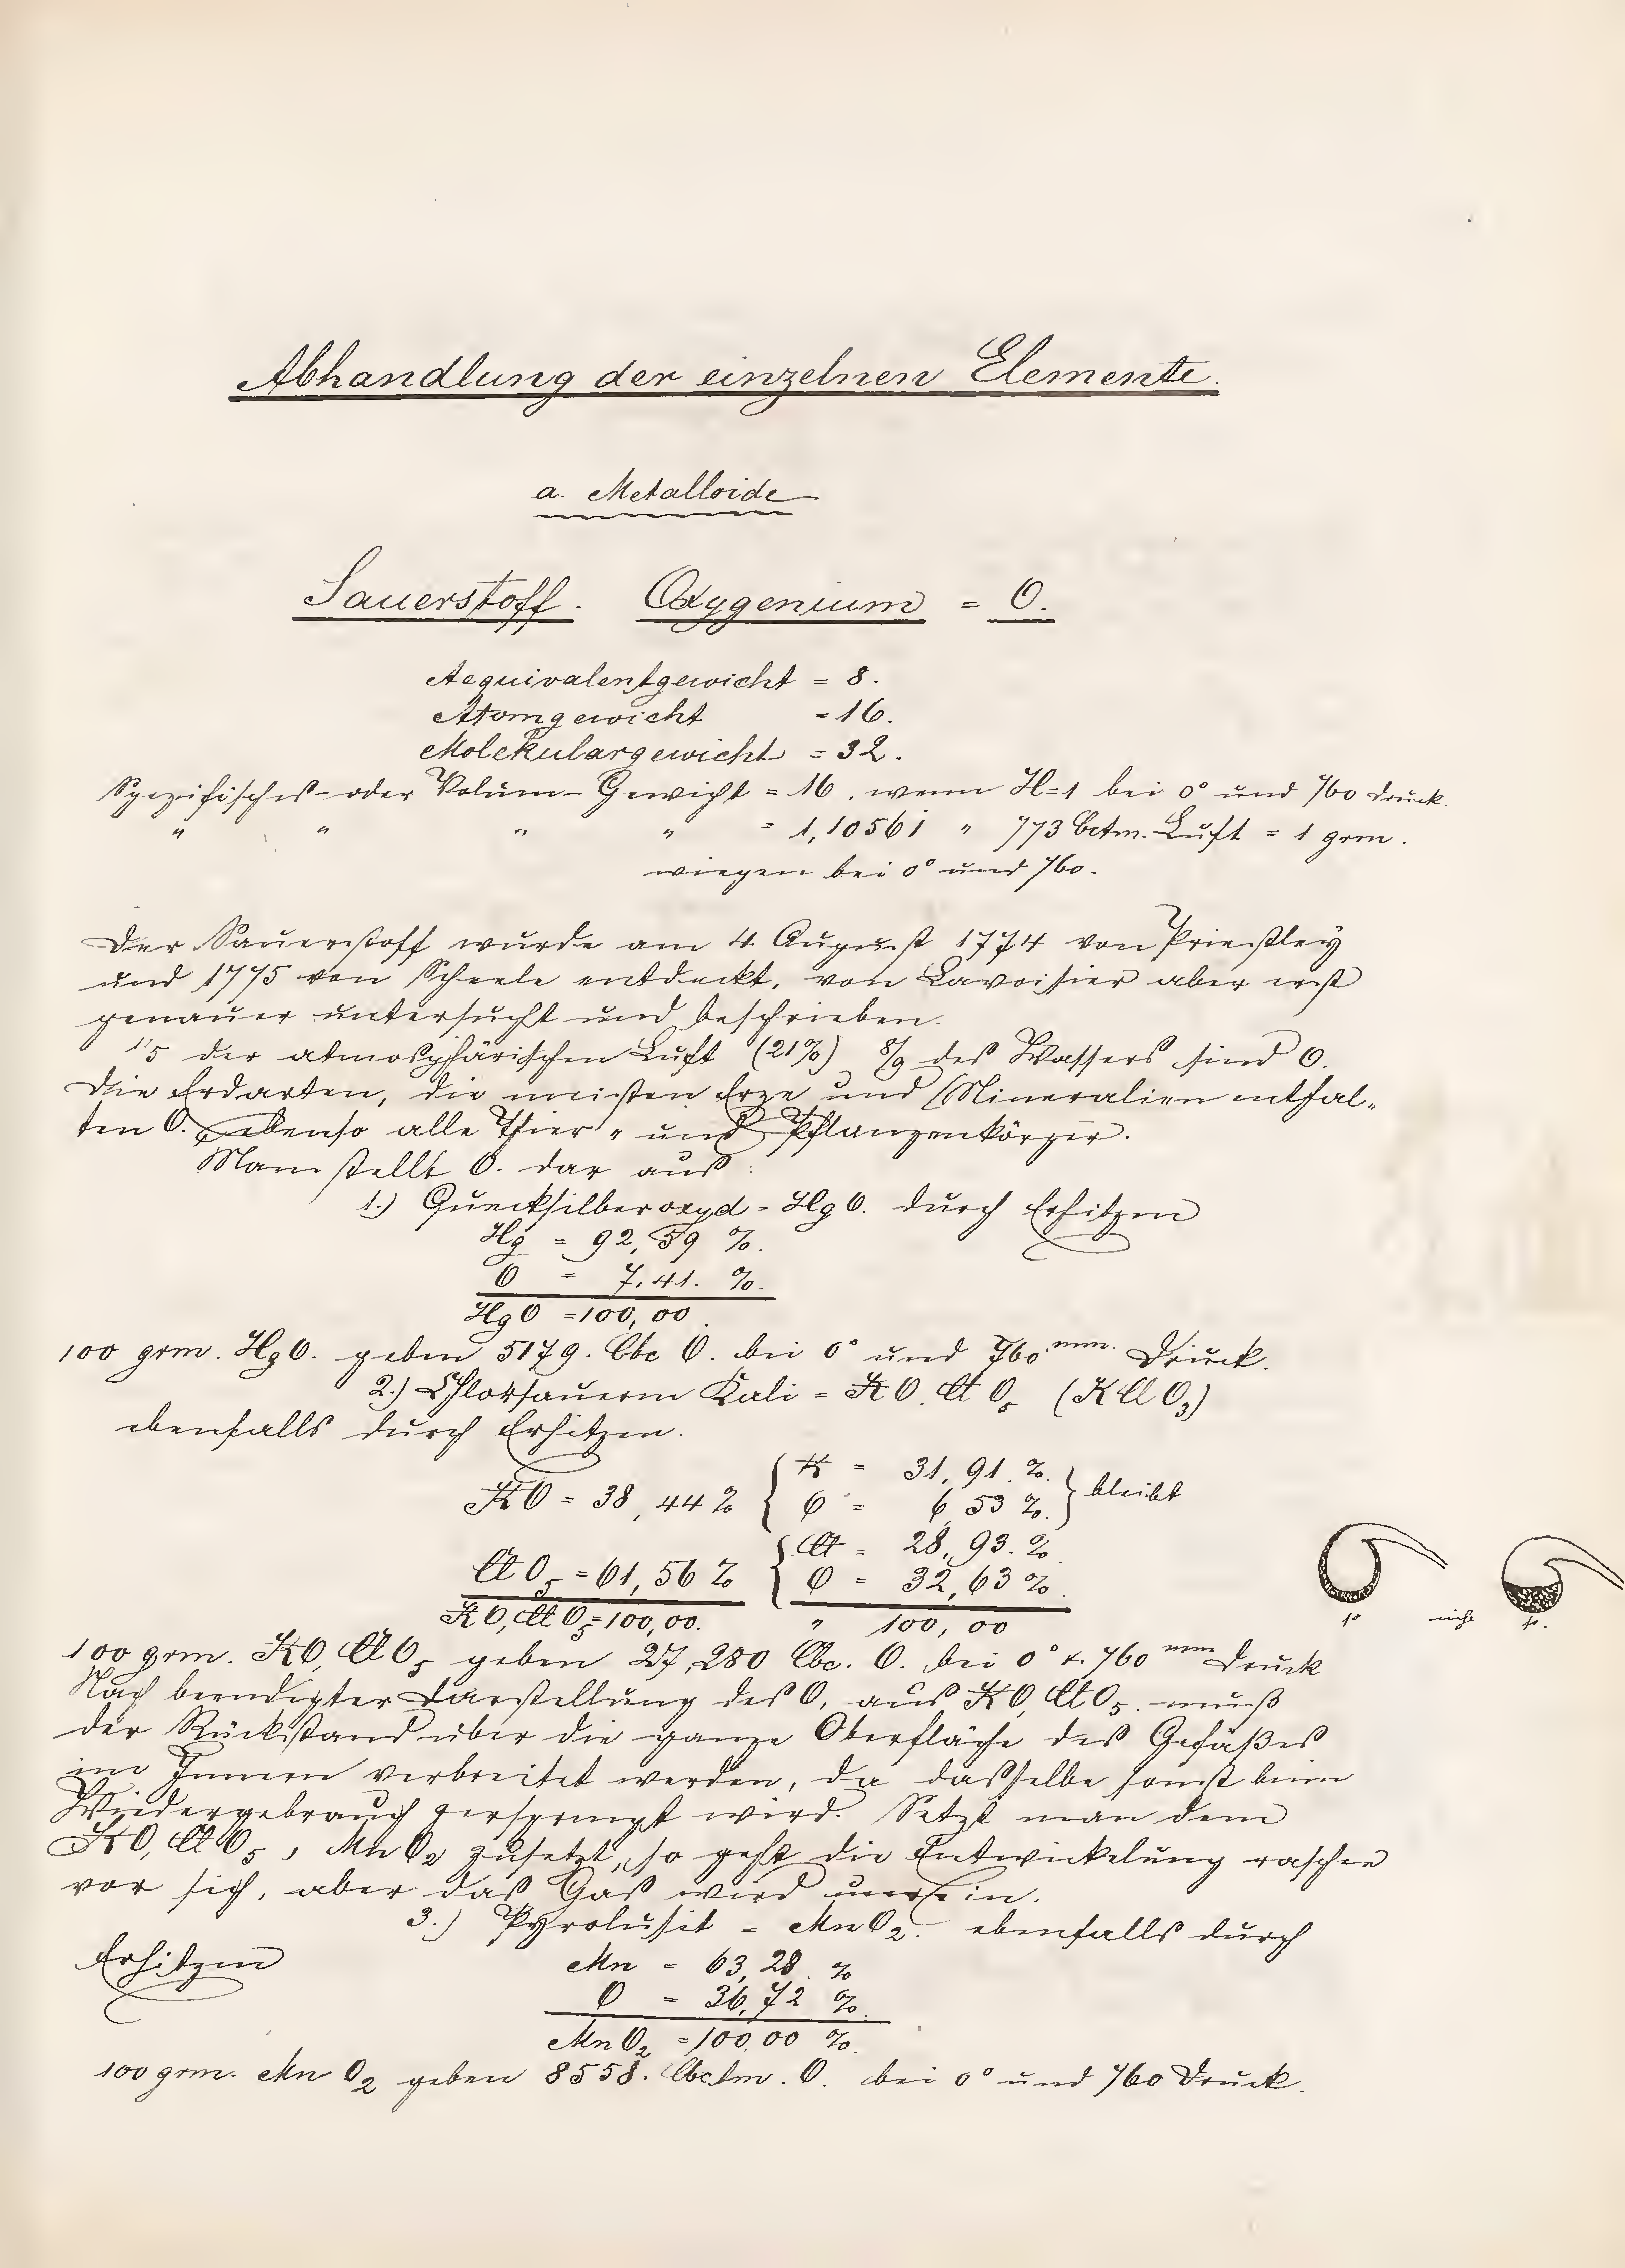 Abhandlung der einzelnen Elemente.
a. Metalloide
Sauerstoff. Oxygenium = O.
Aequivalentgewicht = 8.
Atomgewicht = 16.
Molekulargewicht = 32.
Spezifisches- oder Volum- Gewicht = 16. wenn H=1 bei 0° und 760 Druck.
" " " " = 1,10561 " 773 Cctm. Luft = 1 grm.
wiegen bei 0° und 760.
Der Sauerstoff wurde am 4 August 1774 von Priestley
und 1775 von Scheele entdeckt, von Lavoisier aber erst
genauer untersucht und beschrieben.
1/5 der atmosphärischen Luft (21%) 8/9 des Wassers sind O.
Die Erdarten, die meisten Erze und Mineralien enthal-
ten O. ebenso alle Thier- und Pflanzenkörper.
Man stellt O. dar aus:
1.) Quecksilberoxyd = HgO. durch Erhitzen
Hg = 92,59 %.
O = 7,41. %.
HgO = 100,00.
100 grm. HgO. geben 5179. Cbc O. bei 0° und 760 mm. Druck.
2.) Chlorsauerm Kali = KO. ClO5 (KClO3)
ebenfalls durch Erhitzen.
KO = 38,44 % { K = 31,91. %. O = 6,53 %. } bleibt
ClO5 = 61,56 % { Cl = 28,93. %. O = 32,63 %.
KO, ClO5 = 100,00. " 100,00
so nicht so.
100 grm. KO, ClO5 geben 27,280 Cbc. O. bei 0° & 760 mm Druck
Nach beendigter Darstellung des O, aus KO, ClO5. muß
der Rückstand über die ganze Oberfläche des Gefäßes
im Innern verbreitet werden, da dasselbe sonst beim
Wiedergebrauch zersprengt wird. Setzt man dem
KO, ClO5, MnO2 zusetzt, so geht die Entwickelung rascher
vor sich, aber das Gas wird unrein.
3.) Pyrolusit = MnO2. ebenfalls durch
Erhitzen
Mn = 63,28. %
O = 36,72 %.
MnO2 = 100,00 %.
100 grm. MnO2 geben 8558. Cbctm. O. bei 0° und 760 Druck.